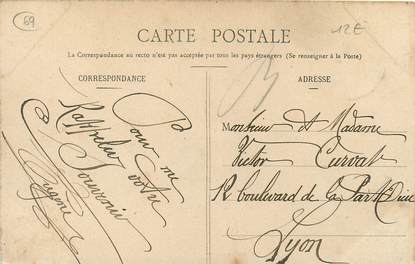 69
12€
CARTE POSTALE
La Correspondance au recto n'est pas acceptée par tous les pays étrangers (Se renseigner à la Poste)
CORRESPONDANCE
ADRESSE
Pour me
Rappeler
votre
Souvenir
Eugène
Monsieur et Madame
Victor Curvat
12 boulevard de la Part Dieu
Lyon